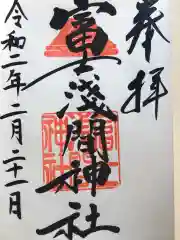 奉拝
富士浅間神社
令和二年二月二十一日